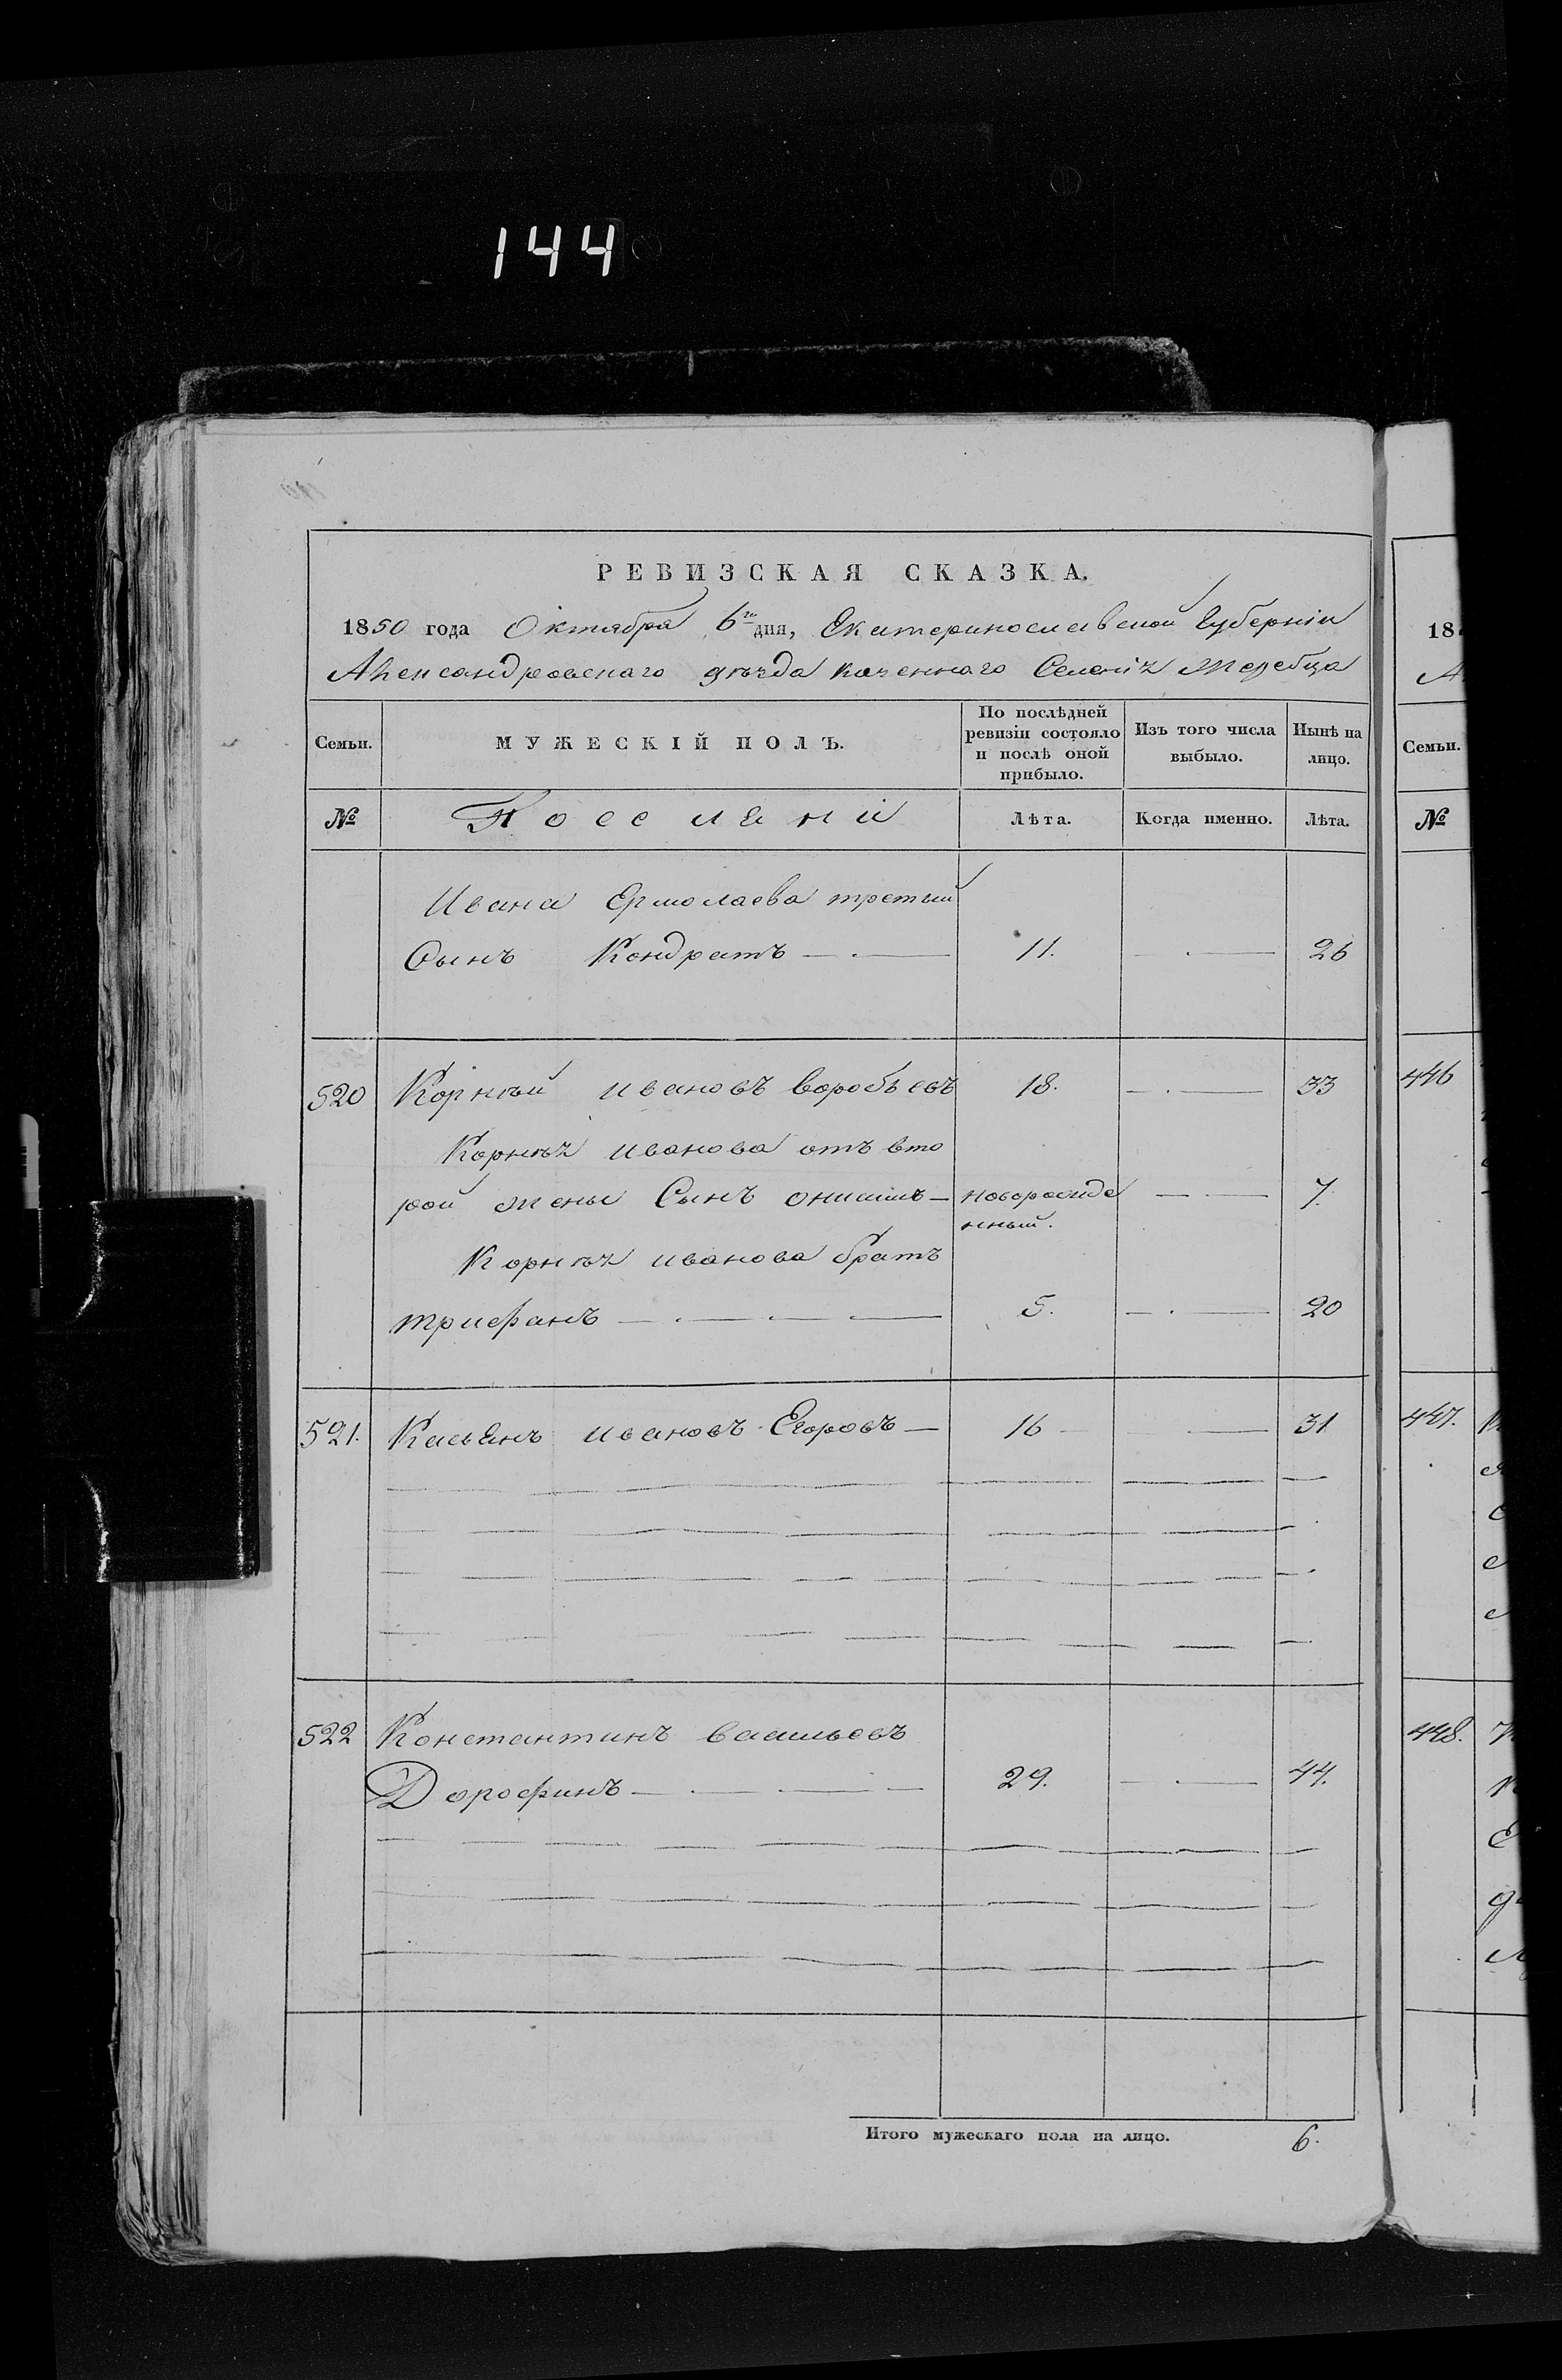 144
РЕВИЗСКАЯ СКАЗКА.
1850 года Октября 6го дня, Екатеринославской Губерніи
Александровскаго уѣзда казеннаго Селенія Жеребца
Семьи.
МУЖЕСКІЙ ПОЛЪ.
По послѣдней ревизіи состояло и послѣ оной прибыло.
Изъ того числа выбыло.
Нынѣ на лицо.
№
Лѣта.
Когда именно.
Лѣта.
Ивана Ермолаева третий
Сынъ Кондратъ 11. 26
520 Корнѣй ивановъ воробьевъ 18. 33
Корнѣя иванова отъ вто
рой жены Сынъ онисимъ новорожде 7.
нный.
Корнѣя иванова братъ
трифанъ 5. 20
521. Касьянъ ивановъ Егоровъ 16 31
522 Константинъ васильевъ
Дорофинъ 29. 44.
Итого мужескаго пола на лицо. 6.
18
А
Семьи.
№
446
447.
448.